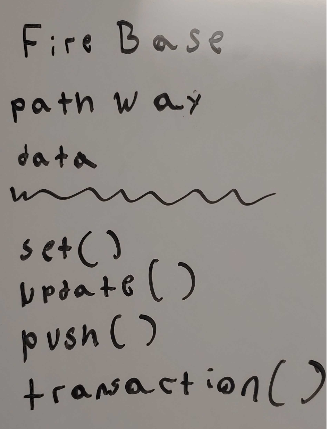 Fire Base
path way
data
set()
update()
push()
transaction()